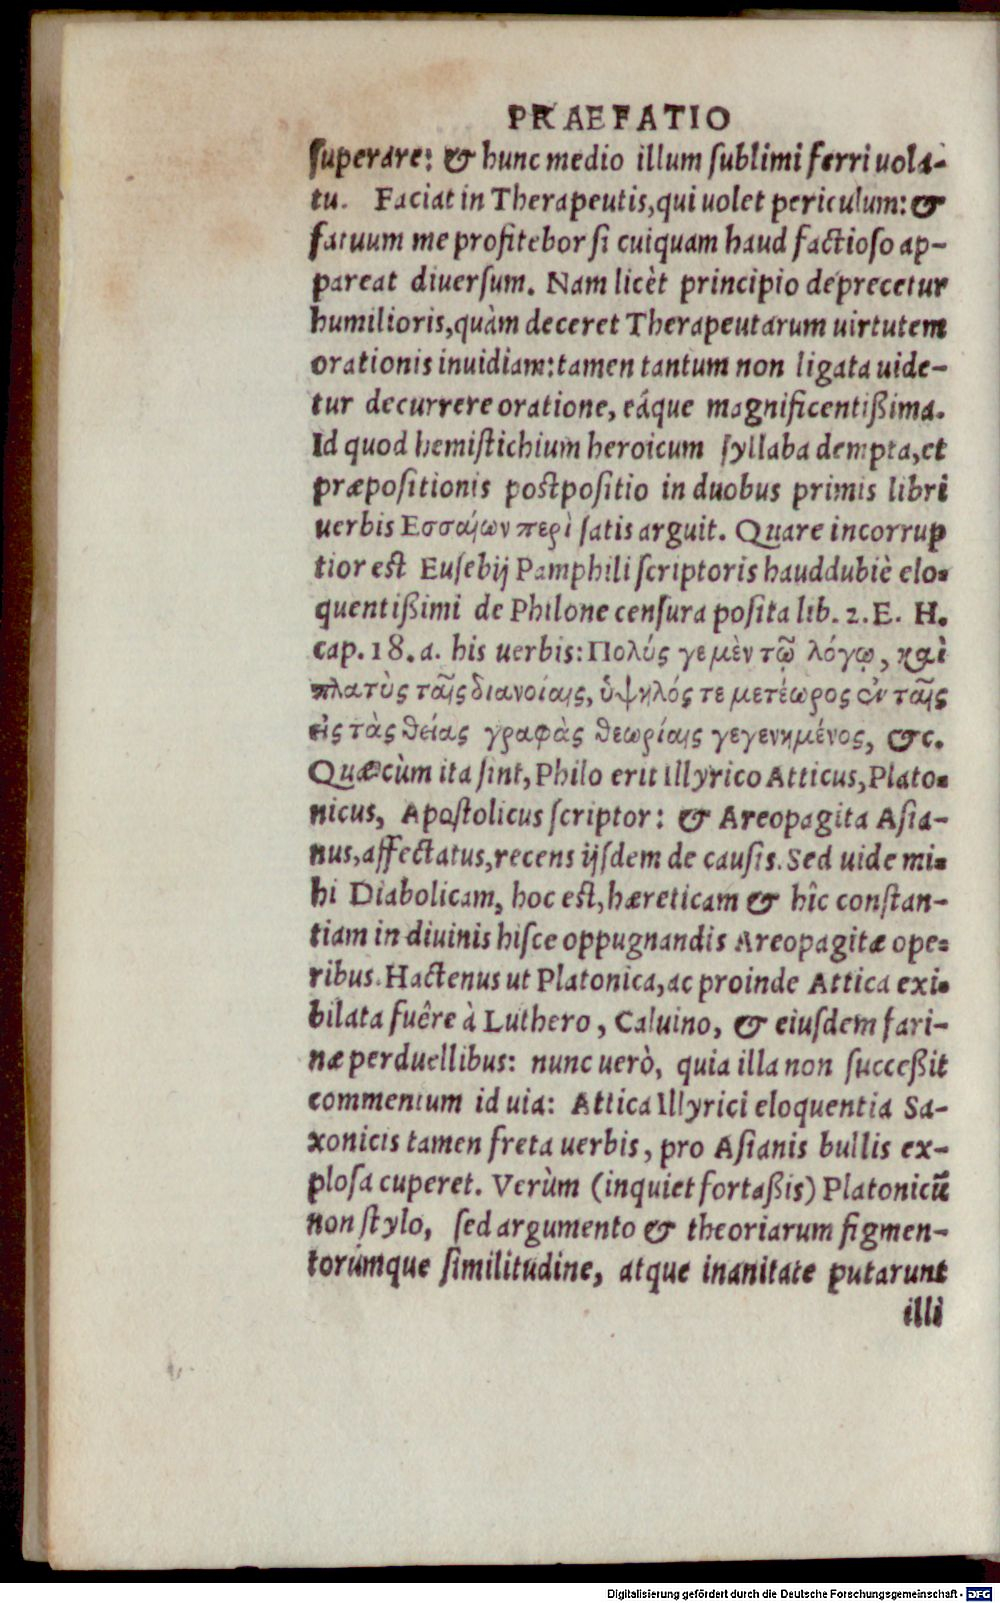 PRAEFATIO
superare: & hunc medio illum sublimi ferri uola-
tu. Faciat in Therapeutis, qui uolet periculum: &
fatuum me profitebor si cuiquam haud factioso ap-
pareat diuersum. Nam licèt principio deprecetur
humilioris, quàm deceret Therapeutarum uirtutem
orationis inuidiam: tamen tantum non ligata uide-
tur decurrere oratione, eáque magnificentißima.
Id quod hemistichium heroicum syllaba dempta, et
præpositionis postpositio in duobus primis libri
uerbis Εσσαίων περὶ satis arguit. Quare incorrup
tior est Eusebij Pamphili scriptoris hauddubiè elo-
quentißimi de Philone censura posita lib. 2. E. H.
cap. 18. a. his uerbis: Πολύς γε μὲν τῷ λόγῳ, καὶ
πλατὺς ταῖς διανοίαις, ὑψηλός τε μετέωρος ἐν ταῖς
εἰς τὰς θείας γραφὰς θεωρίαις γεγενημένος, &c.
Quæ cùm ita sint, Philo erit Illyrico Atticus, Plato-
nicus, Apostolicus scriptor: & Areopagita Asia-
nus, affectatus, recens ijsdem de causis. Sed uide mi-
hi Diabolicam, hoc est, hæreticam & hîc constan-
tiam in diuinis hisce oppugnandis Areopagitæ ope-
ribus. Hactenus ut Platonica, ac proinde Attica exi-
bilata fuêre à Luthero, Caluino, & eiusdem fari-
næ perduellibus: nunc uerò, quia illa non succeßit
commentum id uia: Attica Illyrici eloquentia Sa-
xonicis tamen freta uerbis, pro Asianis bullis ex-
plosa cuperet. Verùm (inquiet fortaßis) Platonicū
non stylo, sed argumento & theoriarum figmen-
torúmque similitudine, atque inanitate putarunt
illi
Digitalisierung gefördert durch die Deutsche Forschungsgemeinschaft - DFG